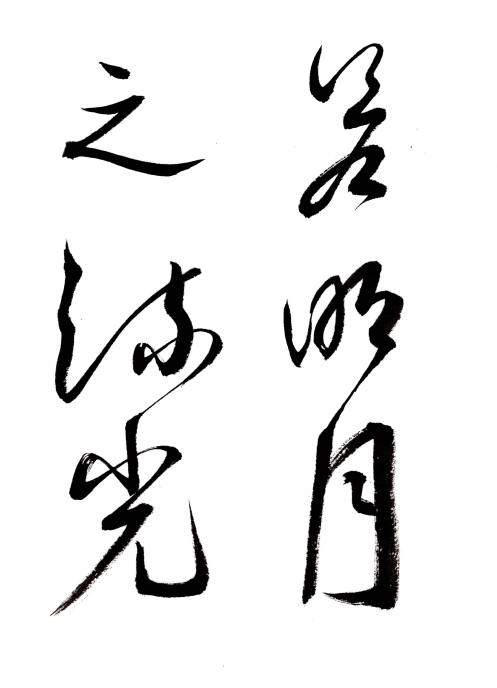 若明月
之流光